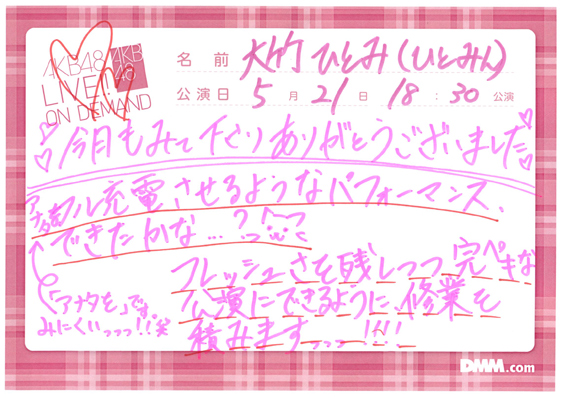 AKB48
LIVE!!
ON DEMAND
AKB
48
名前 大竹ひとみ(ひとみん)
公演日 5月21日 18:30公演
今月もみて下さりありがとうございました
アナタをフル充電させるようなパフォーマンス、
できたかな…?
フレッシュさを残しつつ完ペキな
公演にできるように、修業を
積みますっっっ!!!!
「アナタを」です。
みにくいっっっ!!笑
DMM.com